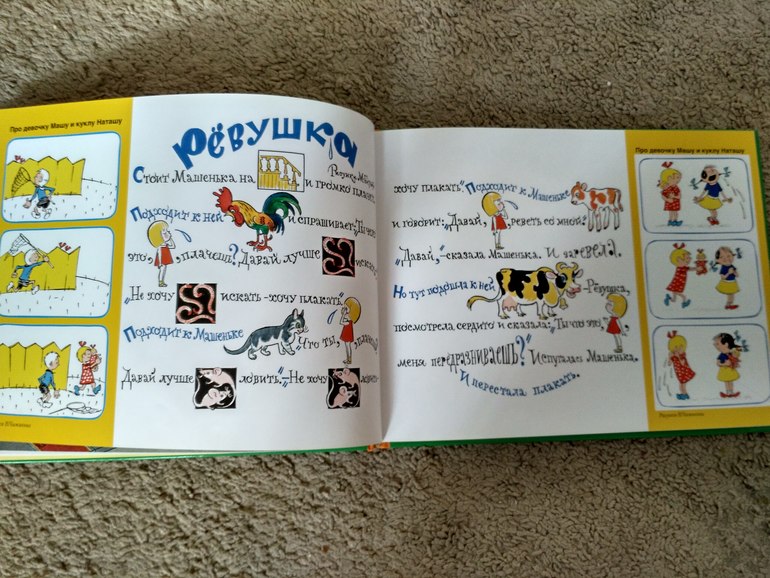 Про девочку Машу и куклу Наташу
РЁВУШКА
Стоит Машенька на и громко плачет.
Подходит к ней и спрашивает: „Ты что
это, плачешь? Давай лучше искать
„Не хочу искать – хочу плакать“
Подходит к Машеньке „Что ты,
Давай лучше ловить.“ – „Не хочу
Про девочку Машу и куклу Наташу
хочу плакать“. Подходит к Машеньке
и говорит: „Давай, реветь со мной?“
„Давай,“ – сказала Машенька. И заревела.
Но тут подошла к ней – Рёвушка,
посмотрела сердито и сказала: „Ты что это,
меня передразниваешь?“ Испугалась Машенька.
И перестала плакать.